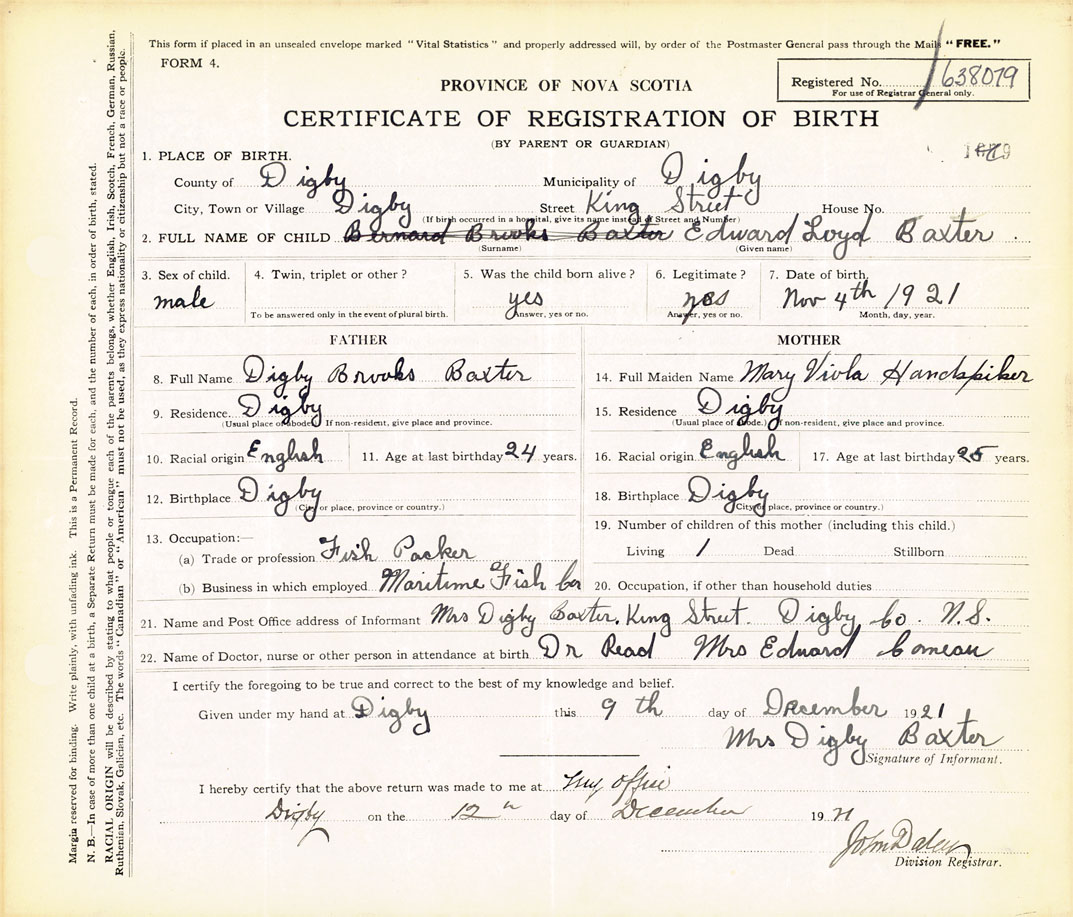 This form if placed in an unsealed envelope marked "Vital Statistics" and properly addressed will, by order of the Postmaster General pass through the Mails "FREE."
FORM 4.
PROVINCE OF NOVA SCOTIA
Registered No. 638079
For use of Registrar General only.
CERTIFICATE OF REGISTRATION OF BIRTH
(BY PARENT OR GUARDIAN)
1. PLACE OF BIRTH.
County of Digby Municipality of Digby
City, Town or Village Digby Street King Street House No.
(If birth occurred in a hospital, give its name instead of Street and Number)
2. FULL NAME OF CHILD Bernard Brooks Baxter Edward Loyd Baxter
(Surname) (Given name)
3. Sex of child. 4. Twin, triplet or other? 5. Was the child born alive? 6. Legitimate? 7. Date of birth.
male yes yes Nov 4th 1921
To be answered only in the event of plural birth. Answer, yes or no. Answer, yes or no. Month, day, year.
FATHER MOTHER
8. Full Name Digby Brooks Baxter 14. Full Maiden Name Mary Viola Handspiker
9. Residence Digby 15. Residence Digby
(Usual place of abode.) If non-resident, give place and province. (Usual place of abode.) If non-resident, give place and province.
10. Racial origin English 11. Age at last birthday 24 years. 16. Racial origin English 17. Age at last birthday 25 years.
12. Birthplace Digby 18. Birthplace Digby
(City or place, province or country.) (City or place, province or country.)
13. Occupation:— 19. Number of children of this mother (including this child.)
(a) Trade or profession Fish Packer Living 1 Dead Stillborn
(b) Business in which employed Maritime Fish Cor 20. Occupation, if other than household duties
21. Name and Post Office address of Informant Mrs Digby Baxter, King Street. Digby Co. N.S.
22. Name of Doctor, nurse or other person in attendance at birth Dr Read Mrs Edward Comeau
I certify the foregoing to be true and correct to the best of my knowledge and belief.
Given under my hand at Digby this 9th day of December 1921
Mrs Digby Baxter
Signature of Informant.
I hereby certify that the above return was made to me at my office
Digby on the 12 day of December 19 21
John Daley
Division Registrar.
Margin reserved for binding. Write plainly, with unfading ink. This is a Permanent Record.
N. B.—In case of more than one child at a birth, a Separate Return must be made for each, and the number of each, in order of birth, stated.
RACIAL ORIGIN will be described by stating to what people or tongue each of the parents belongs, whether English, Irish, Scotch, French, German, Russian,
Ruthenian, Slovak, Galician, etc. The words "Canadian" or "American" must not be used, as they express nationality or citizenship but not a race or people.